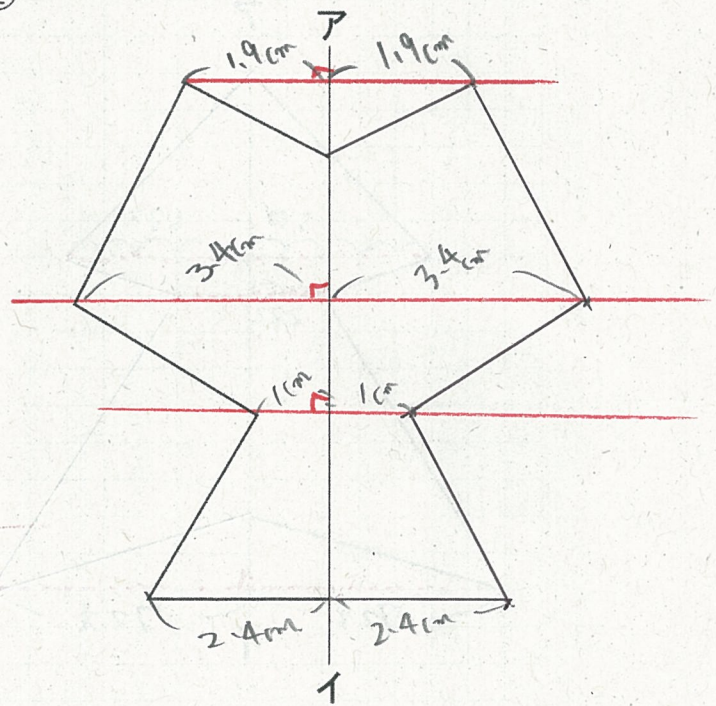 ア
1.9cm 1.9cm
3.4cm 3.4cm
1cm 1cm
2.4cm 2.4cm
イ